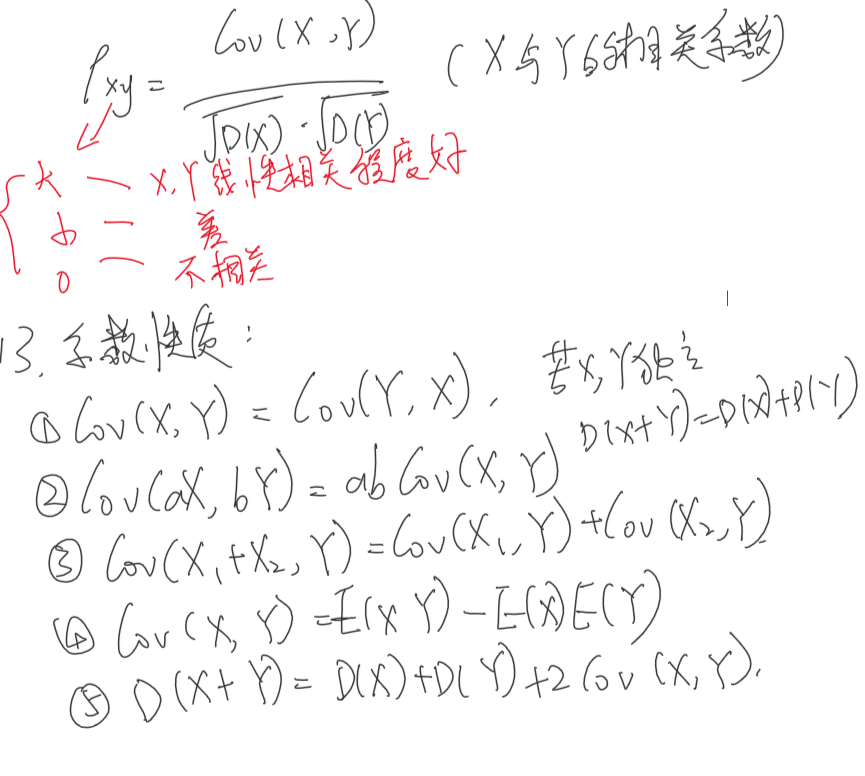 ρxy = Cov(X,Y) / √D(X) · √D(Y) (X与Y的相关系数)
大 — X,Y线性相关程度好
小 — 差
0 — 不相关
13. 系数性质:
① Cov(X,Y) = Cov(Y,X).
若X,Y独立
D(X+Y)=D(X)+D(Y)
② Cov(aX,bY) = ab Cov(X,Y)
③ Cov(X₁+X₂,Y) = Cov(X₁,Y)+Cov(X₂,Y)
④ Cov(X,Y) = E(XY) - E(X)E(Y)
⑤ D(X+Y) = D(X)+D(Y)+2Cov(X,Y).